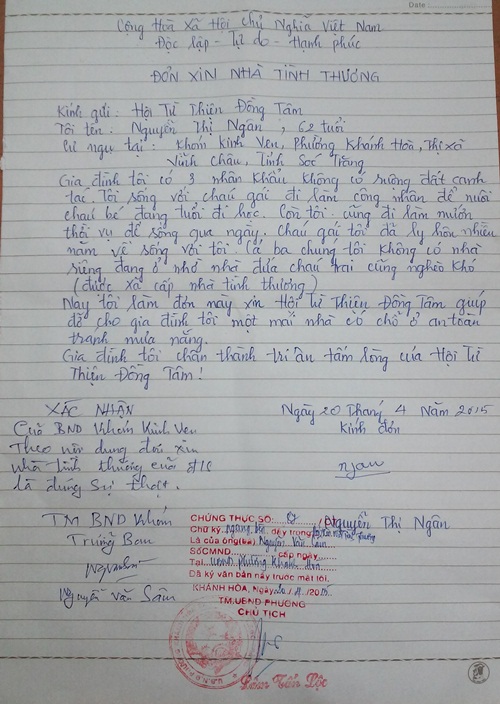 Date
Cộng Hoà Xã Hội Chủ Nghĩa Việt Nam
Độc lập - Tự do - Hạnh phúc
ĐƠN XIN NHÀ TÌNH THƯƠNG
Kính gửi: Hội Từ Thiện Đồng Tâm
Tôi tên: Nguyễn Thị Ngân, 62 tuổi
Cư ngụ tại: Khóm Kinh Ven, Phường Khánh Hoà, Thị xã
Vĩnh Châu, Tỉnh Sóc Trăng
Gia đình tôi có 3 nhân khẩu không có ruộng đất canh
tác. Tôi sống với cháu gái đi làm công nhân để nuôi
cháu bé đang tuổi đi học. Còn tôi cũng đi làm mướn
thời vụ để sống qua ngày. Cháu gái tôi đã ly hôn nhiều
năm về sống với tôi. Cả ba chúng tôi không có nhà
riêng đang ở nhờ nhà đứa cháu trai cũng nghèo khó
(được xã cấp nhà tình thương)
Nay tôi làm đơn này xin Hội Từ Thiện Đồng Tâm giúp
đỡ cho gia đình tôi một mái nhà có chỗ ở an toàn
tránh mưa nắng.
Gia đình tôi chân thành tri ân tấm lòng của Hội Từ
Thiện Đồng Tâm!
XÁC NHẬN
Của BND Khóm Kinh Ven
Theo nội dung đơn xin
nhà tình thương của
là đúng sự thật.
Ngày 20 Tháng 4 Năm 2015
Kính đơn
ngan
Nguyễn Thị Ngân
TM BND Khóm
Trưởng Ban
Nguyễn Văn Sâm
CHỨNG THỰC SỐ:
Chữ ký
Là của ông(bà) Nguyễn Văn Sâm
SốCMND cấp ngày
Tại UBND phường Khánh Hoà
Đã ký văn bản này trước mặt tôi.
KHÁNH HÒA, Ngày /4/2015
TM.UBND PHƯỜNG
CHỦ TỊCH
Tấn Lộc